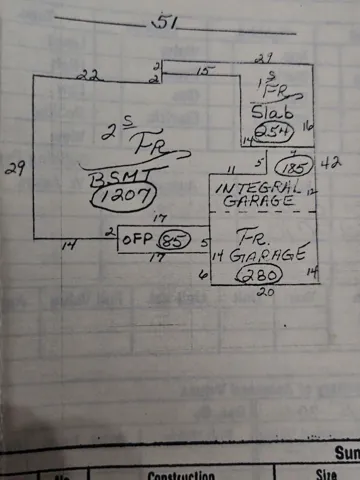 51
29
22
2
2
15
1 S
FR
Slab
254
16
14
2 S
FR
BSMT
1207
29
11
5
185
42
INTEGRAL
GARAGE
12
17
2
OFP 85
5
14
17
14
FR.
GARAGE
280
14
6
20
Sum
No
Construction
Size